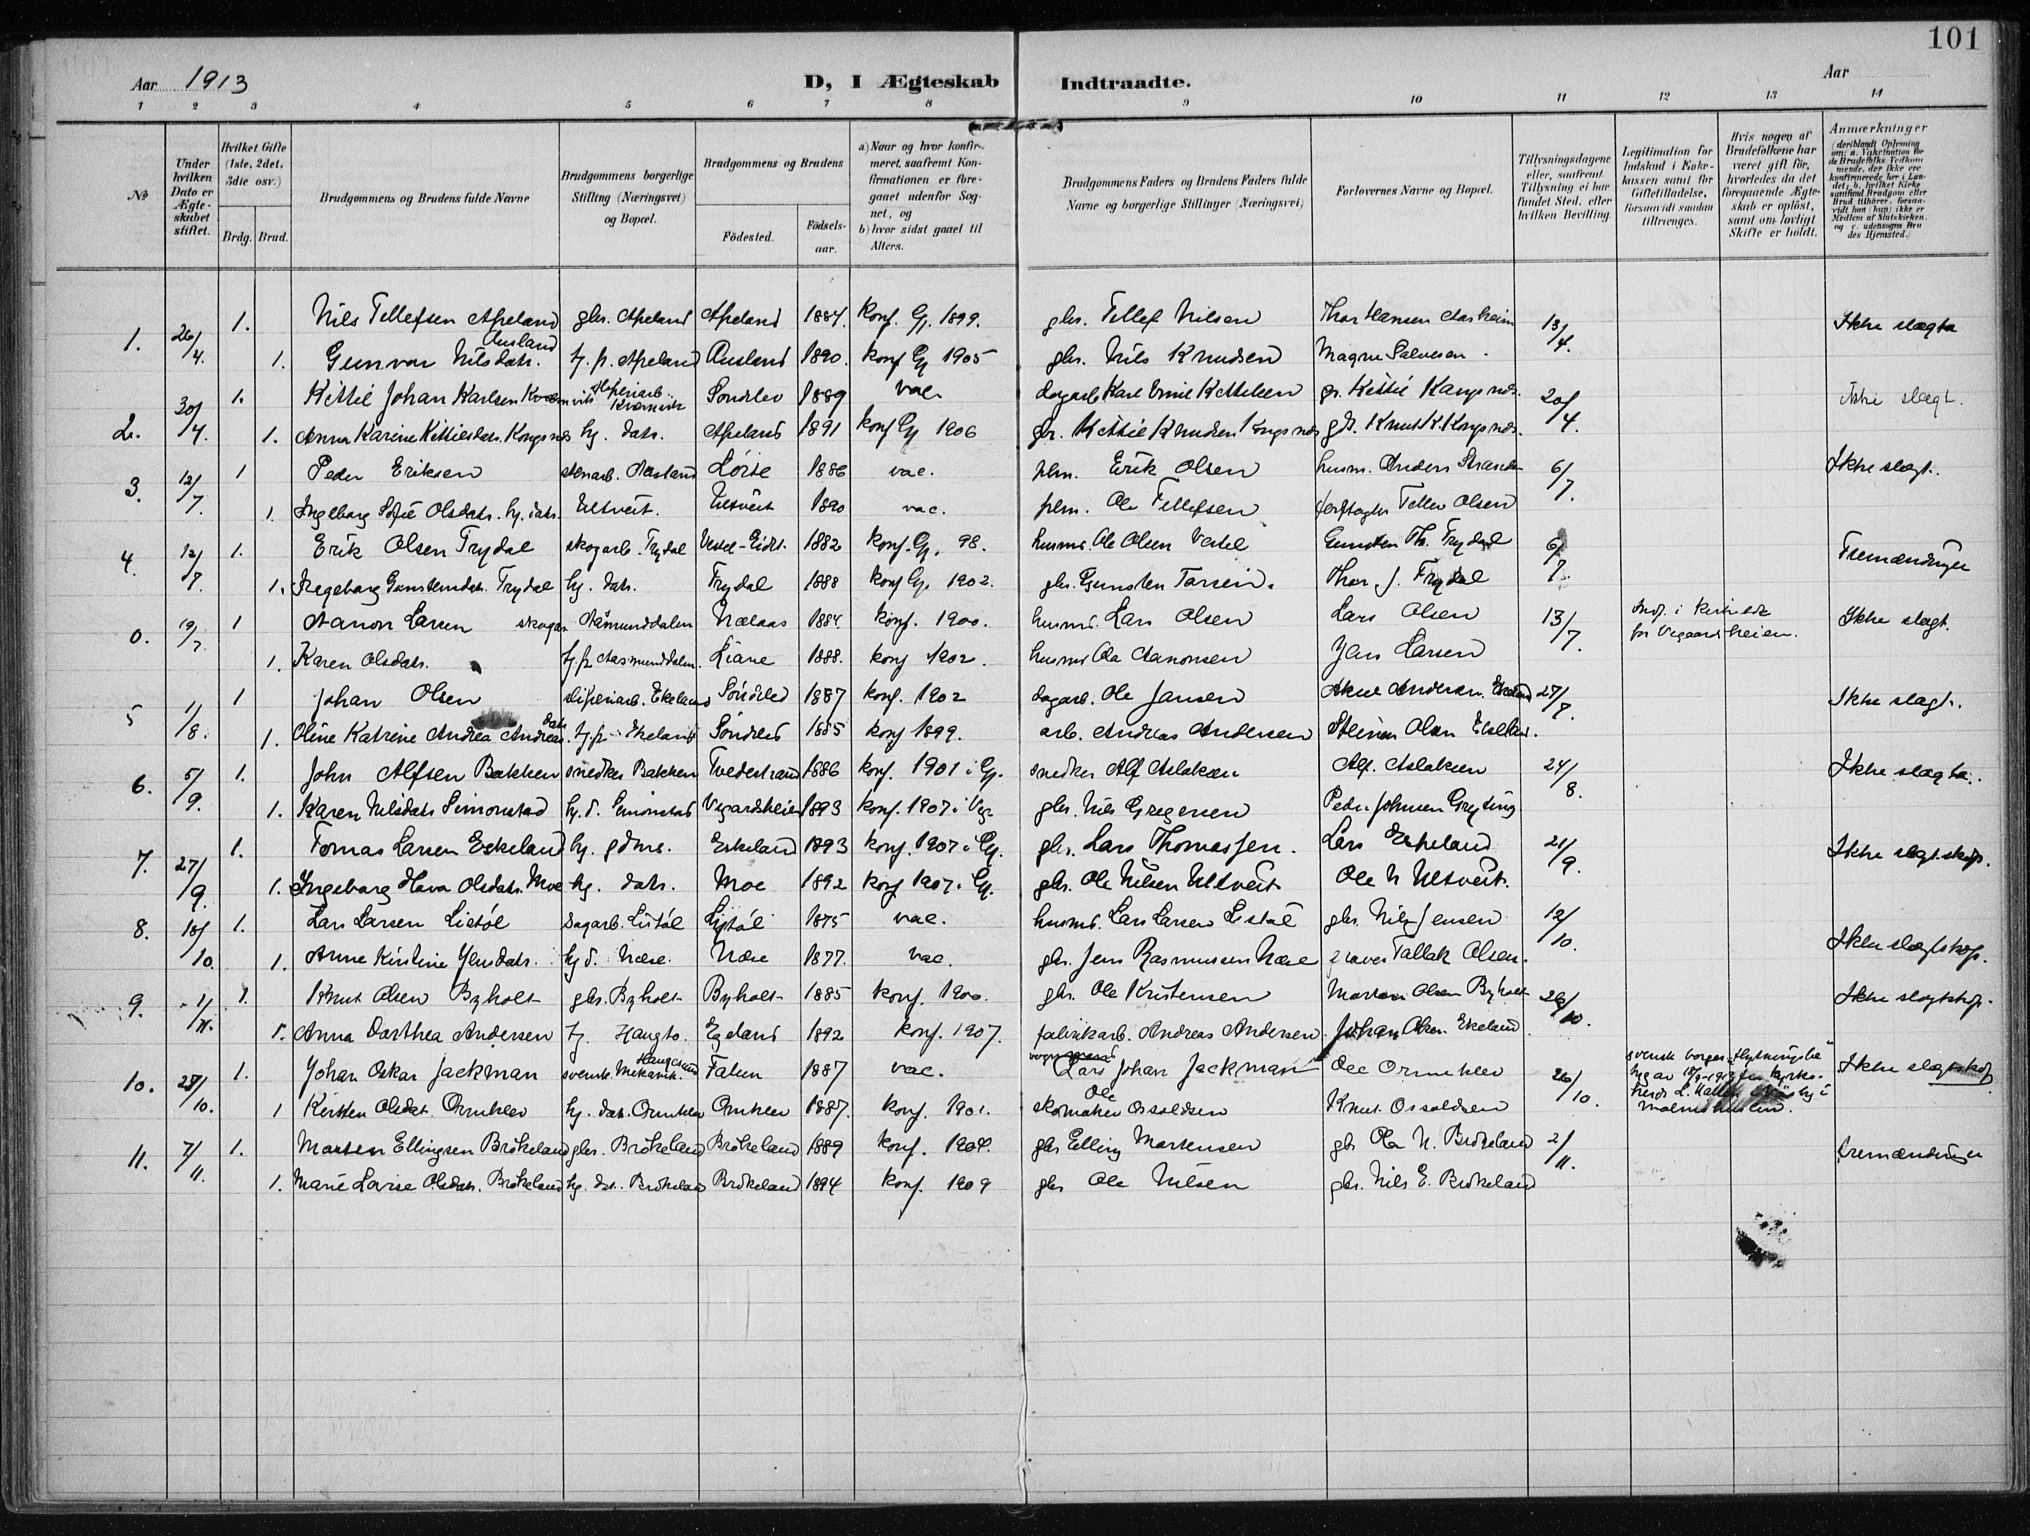 101
Aar 1913
D, I Ægteskab Indtraadte.
Aar
1 2 3 4 5 6 7 8 9 10 11 12 13 14
№
Under hvilken Dato er Ægteskabet stiftet.
Hvilket Gifte (1ste, 2det, 3die osv.)
Brdg. Brud.
Brudgommens og Brudens fulde Navne
Brudgommens borgerlige Stilling (Næringsvei) og Bopæl.
Brudgommens og Brudens
Födested.
Födsels-aar.
a) Naar og hvor konfirmeret, saafremt Konfirmationen er foregaaet udenfor Sognet, og
b) hvor sidst gaaet til Alters.
Brudgommens Faders og Brudens Faders fulde Navne og borgerlige Stillinger (Næringsvei)
Forlovernes Navne og Bopæl.
Tillysningsdagene eller, saafremt Tillysning ei har fundet Sted, efter hvilken Bevilling.
Legitimation for Indskud i Enkekassen samt for Giftetilladelse, forsaavidt saadan tiltrænges.
Hvis nogen af Brudefolkene har været gift før, hvorledes da det foregaaende Ægteskab er oplöst, samt om lovligt Skifte er holdt.
Anmærkninger
1. 26/4. 1. Nils Tellefsen Apeland gbr. Apeland Apeland 1884. Konf. Gj. 1899. gbr. Tellef Nilsen Thor Hansen Aasheim 13/4. Ikke slegta
1. Gunvor Nilsdatr. Ausland tj. p. Apeland Ausland 1890. konf Gj 1905 gbr. Nils Knudsen Magne Salvesen.
2. 30/4. 1. Kittil Johan Karlsen Kvernvik Söndlev 1889 vac. dagarb. Karl Emil Kittilsen 20/4. Ikke slegt.
1. Anna Karine Kittilsdatr. Kongsnes hj. datr. Apeland 1891 konf Gj 1906 gbr. Kittil Knudsen Kongsnes gbr. Knut K Kongsnes.
3. 12/7. 1 Peder Eriksen stenarb. 1886 vac. plm. Erik Olsen husm. Anders 6/7. Ikke slegt.
1. Ingeborg Sofie Olsdatr. hj. datr. Ultveit. Ultveit 1890 vac. plm. Ole Tellefsen Tellev Olsen
4. 12/7 1. Erik Olsen Trydal skogarb. Trydal Vestel-Eidet. 1882 konf. Gj. 98. husmd. Ole Olsen Vestel Gunsten Th. Trydal 6/7. Fremændinger
1. Ingeborg Gunstensdatr. Trydal hj. datr. Trydal 1888 konf Gj. 1902. gbr. Gunsten Tarjein. Thor J. Trydal
0. 19/7. 1 Aanon Larsen skogar. Aamunddalen Nælaas 1884. konf. 1900. husmd. Lars Olsen Lars Olsen 13/7. for Vegaardsheien. Ikke slegt.
1. Karen Olsdatr. tj. p. Aasmunddalen Liane 1888. konf 1902. husmd Ola Aanonsen Jens Larsen
5 1/8. 1 Johan Olsen sliperiarb. Ekeland Söndeled 1887 konf. 1902 dagarb. Ole Jansen 27/7. Ikke slegt.
1. Oline Katrine Andrea Andreasdatr. tj. p. Ekeland Söndeled 1885 konf 1899. arb. Andreas Andersen
6. 5/9. 1. John Alfsen Bakken snedker Bakken Tvedestrand 1886 konf. 1901 i Gj. snedker Alf Aslaksen Alf. Aslaksen 24/8. Ikke slegta.
1. Karen Nilsdatr. Simonstad hj. d. Simonstad Vegardsheien 1893 konf. 1907 i Veg. gbr. Nils Gregersen Peder Johnsen
7. 27/9. 1. Tomas Larsen Eskeland hj. gdms. Eskeland 1893 konf. 1907 i Gj. gbr. Lars Thomassen. Lars Eskeland 21/9. Ikke slegtskap.
1. Ingeborg Hava Olsdatr. Moe hj. datr. Moe 1892 konf 1907 i Gj. gbr. Ole Nilsen Ultveit Ole N Ultveit.
8. 18/10. 1. Lars Larsen Listøl dagarb. Listøl Listøl 1875 vac. husmd. Lars Larsen Listøl gbr. Nils Jensen 12/10. Ikke slegtskap.
1. Anne Kirstine Jensdatr. hj d. Næse. Næse 1877. vac. gbr. Jens Rasmussen Næse graver Tallak Olsen.
9. 1/11. 1. Knut Olsen Byholt gbr. Byholt Byholt 1885 konf. 1900. gbr. Ole Kristensen Morten Olsen Byholt 26/10. Ikke slegtskap.
1. Anna Dorthea Andersen tj. Haugto. Egeland 1892 konf. 1907. fabrikarb. Andreas Andersen. Johan Olsen Ekeland
10. 28/10. 1. Johan Oskar Jackman svensk. Mekanik. Haugesund Falun 1887 vac. Lars Johan Jackman Ole Ormhlev 26/10. svensk borger. Ikke slegtskap
1 Kirsten Olsdat. Ormhlev hj. dat. Ormhlev Ormhlev 1887. konf. 1901. skomaker Ole Osvoldsen Knut Osvoldsen
11. 7/11. 1. Morten Ellingsen Brökeland gbr. Brökeland Brökeland 1889 konf. 1904. gbr Elling Mortensen gbr Ola N. Brökeland 2/11. Fremændinger
1. Marie Lovise Olsdatr. Brökeland hj. dat. Brökeland Brökeland 1894 konf. 1909 gbr Ole Nilsen gbr. Nils E. Brökeland